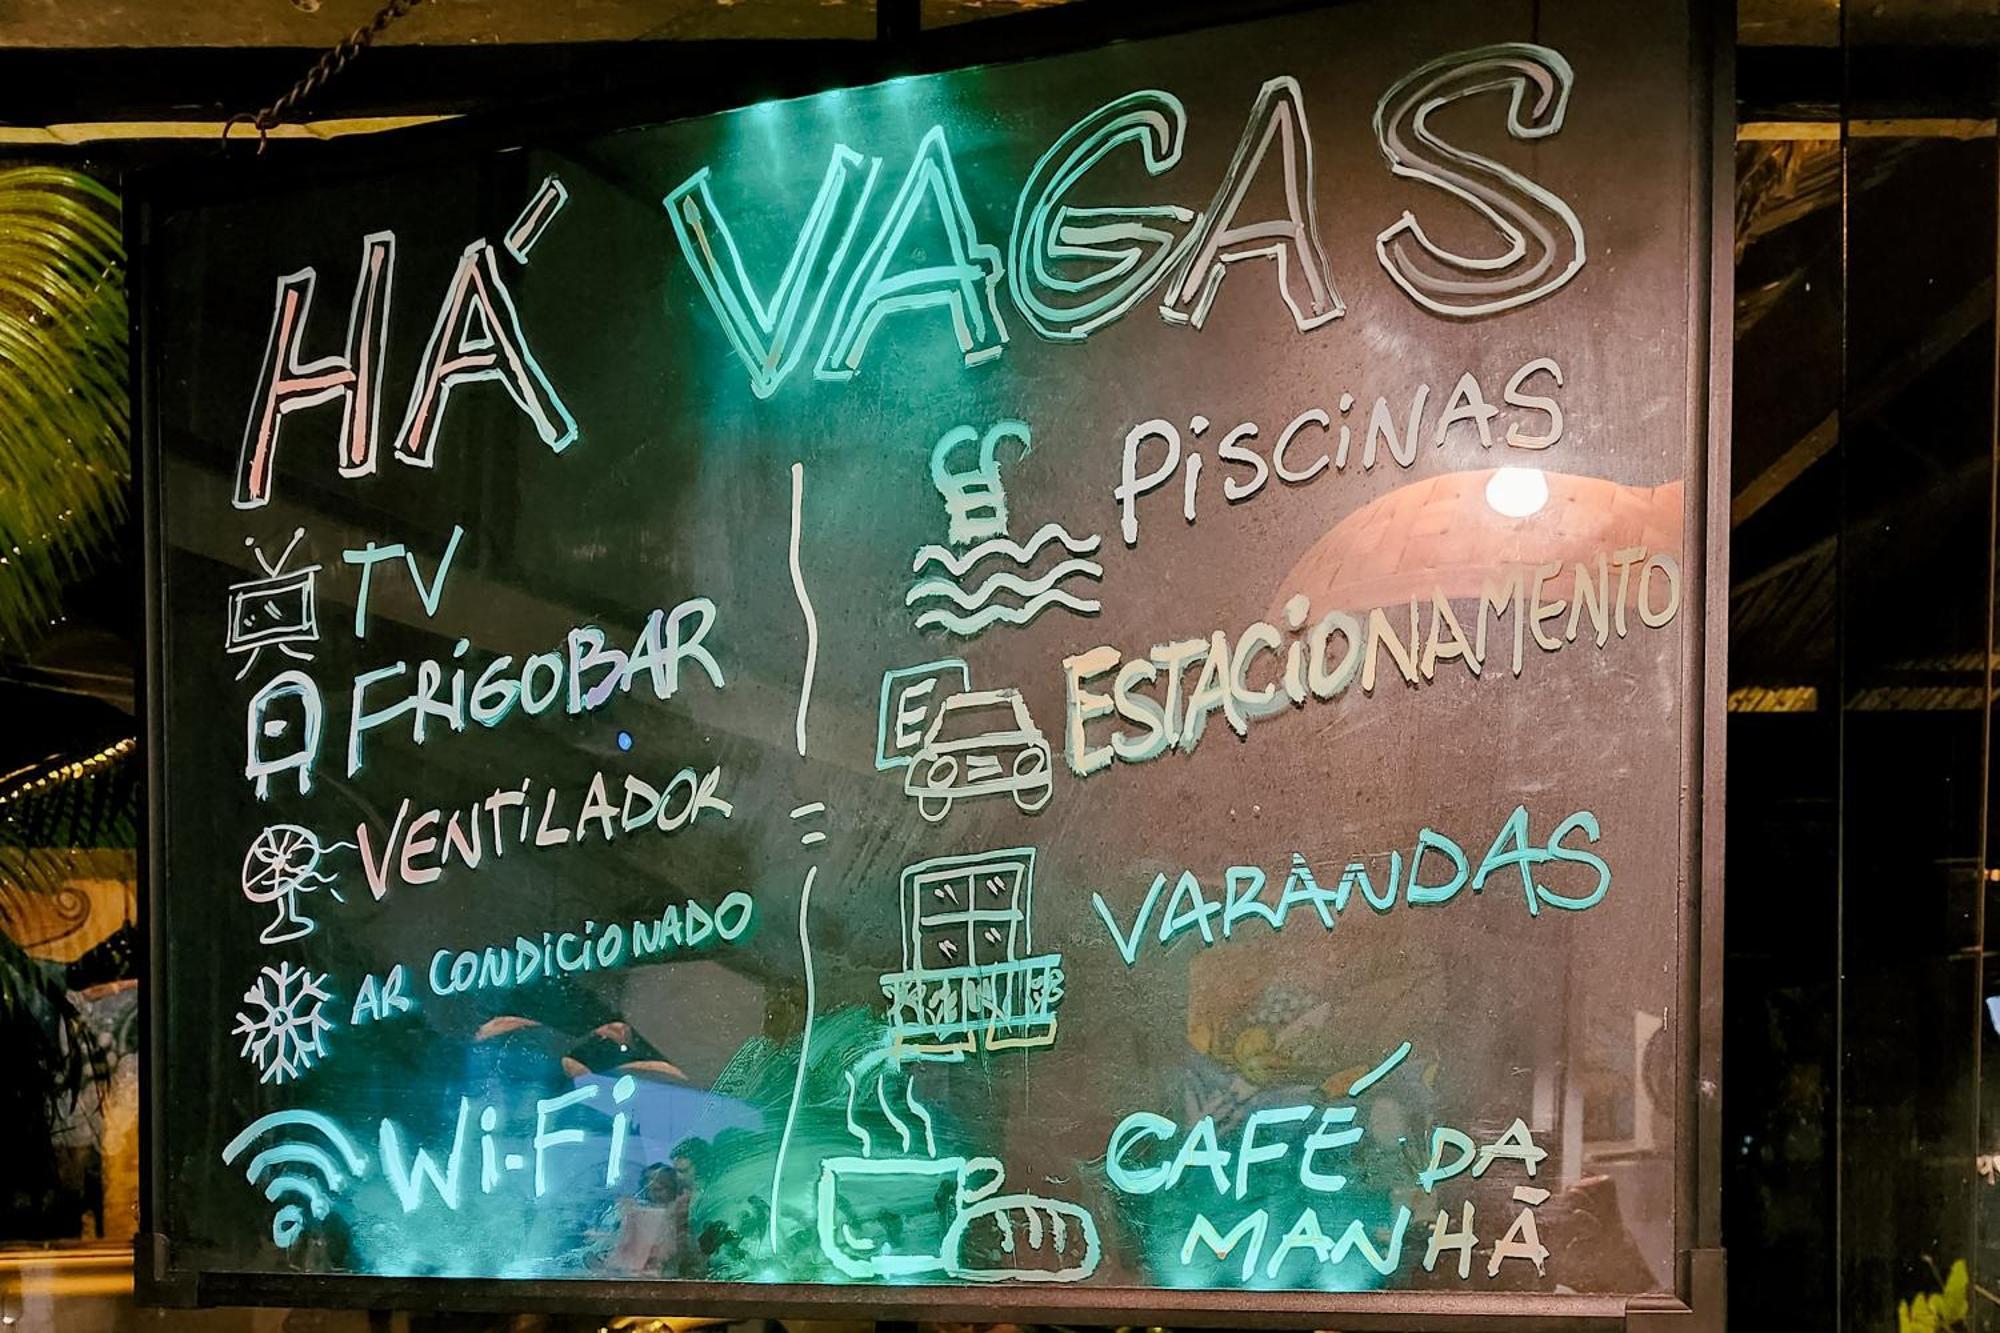 HÁ VAGAS
TV
FRIGOBAR
VENTILADOR
AR CONDICIONADO
Wi-Fi
PISCINAS
E
ESTACIONAMENTO
VARANDAS
CAFÉ DA
MANHÃ